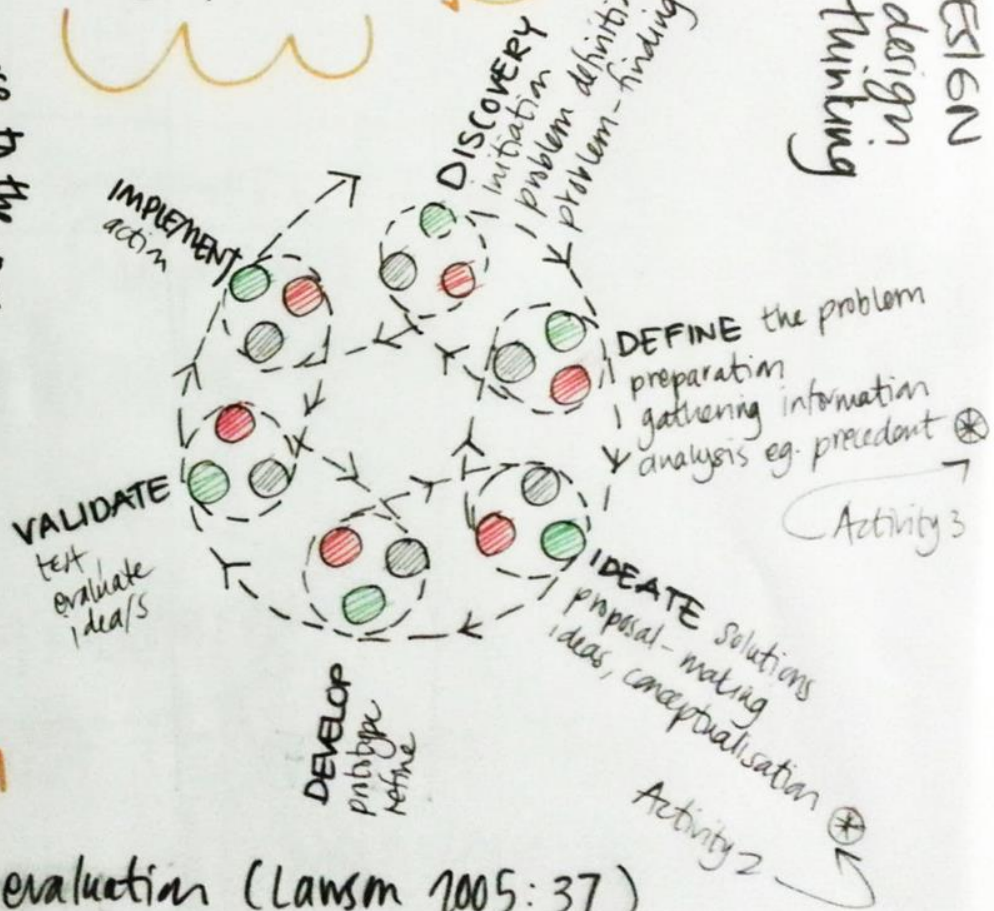 ESIGN
design
thinking
DISCOVERY
initiation
problem definiti
problem-finding
IMPLEMENT
action
DEFINE the problem
preparation
gathering information
analysis eg. precedent
Activity 3
IDEATE solutions
proposal-making
ideas, conceptualisation
Activity 2
DEVELOP
prototype
refine
VALIDATE
test
evaluate
idea/s
to the
evaluation (Lawson 2005:37)